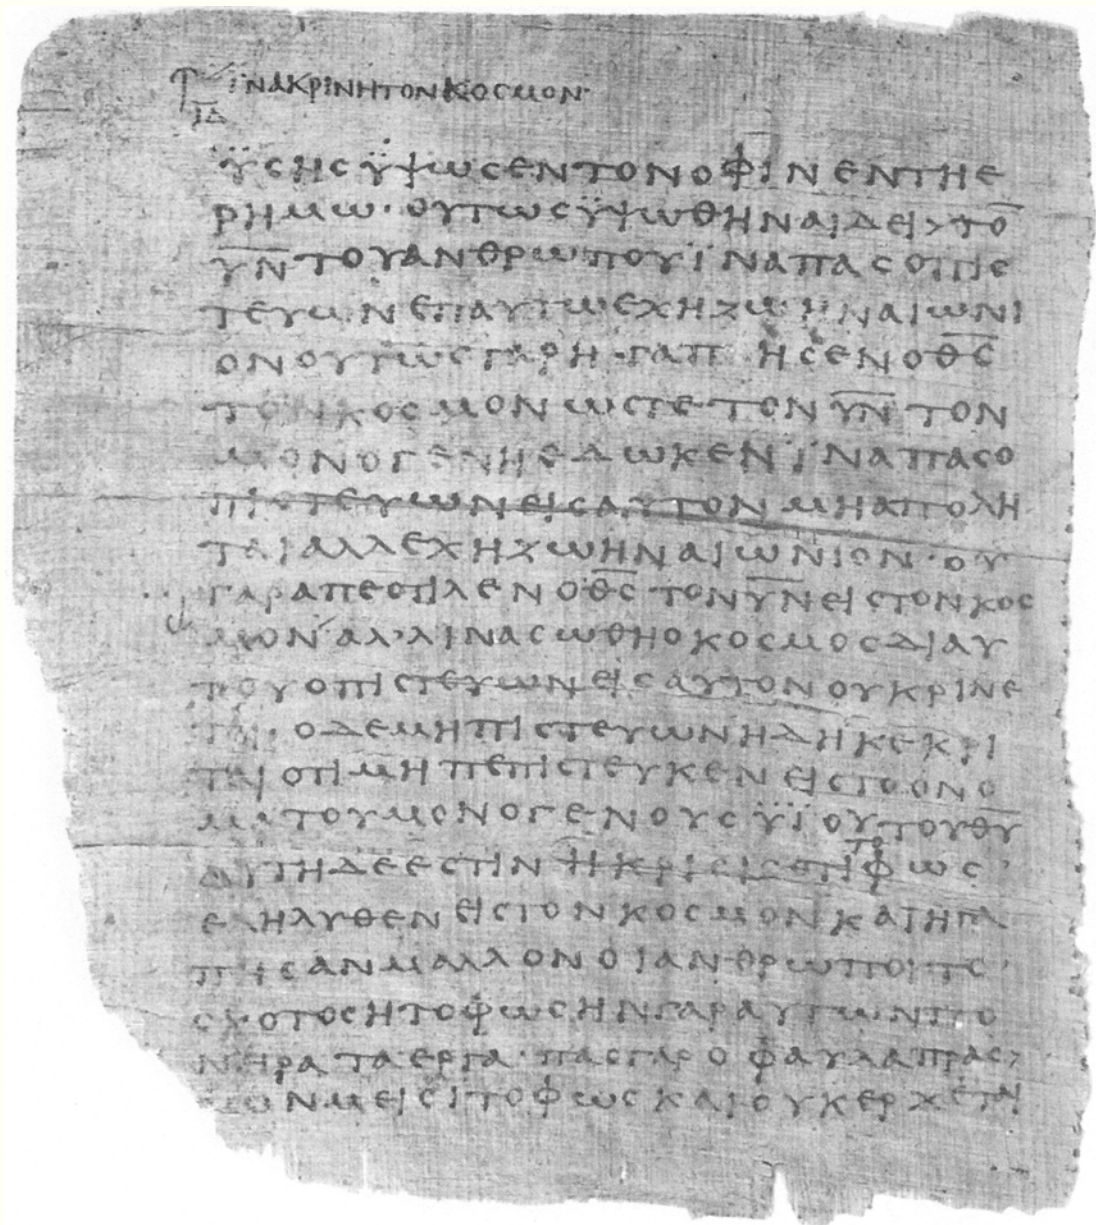 ἵνα κρινη τον κοσμον·
ΙΔ
ϋσης ϋψωσεν τον οφιν εν τη ε
ρημω· ουτως ϋψωθηναι δει > το
ΥΝ του ανθρωπου ϊνα πας ο πισ
τευων επ αυτω εχη ζωην αιωνι
ον ουτως γαρ ηγαπησεν ο ΘΣ
τον κοσμον ωστε τον ΥΝ τον
μονογενη εδωκεν ϊνα πας ο
πιστευων εις αυτον μη απολη
ται αλλ εχη ζωην αιωνιον· ου
γαρ απεστιλεν ο ΘΣ τον ΥΝ εις τον κοσ
μον αλλ ινα σωθη ο κοσμος δι αυ
του ο πιστευων εις αυτον ου κρινε
ται· ο δε μη πιστευων ηδη κεκρι
ται οτι μη πεπιστευκεν εις το ονο
μα του μονογενους ϋϊου του ΘΥ
αυτη δε εστιν η κρισις οτι το φως
εληλυθεν εις τον κοσμον και ηγα
πησαν μαλλον οι ανθρωποι το
σκοτος η το φως ην γαρ αυτων πο
νηρα τα εργα· πας γαρ ο φαυλα πρασ>
σων μεισι το φως και ουκ ερχεται